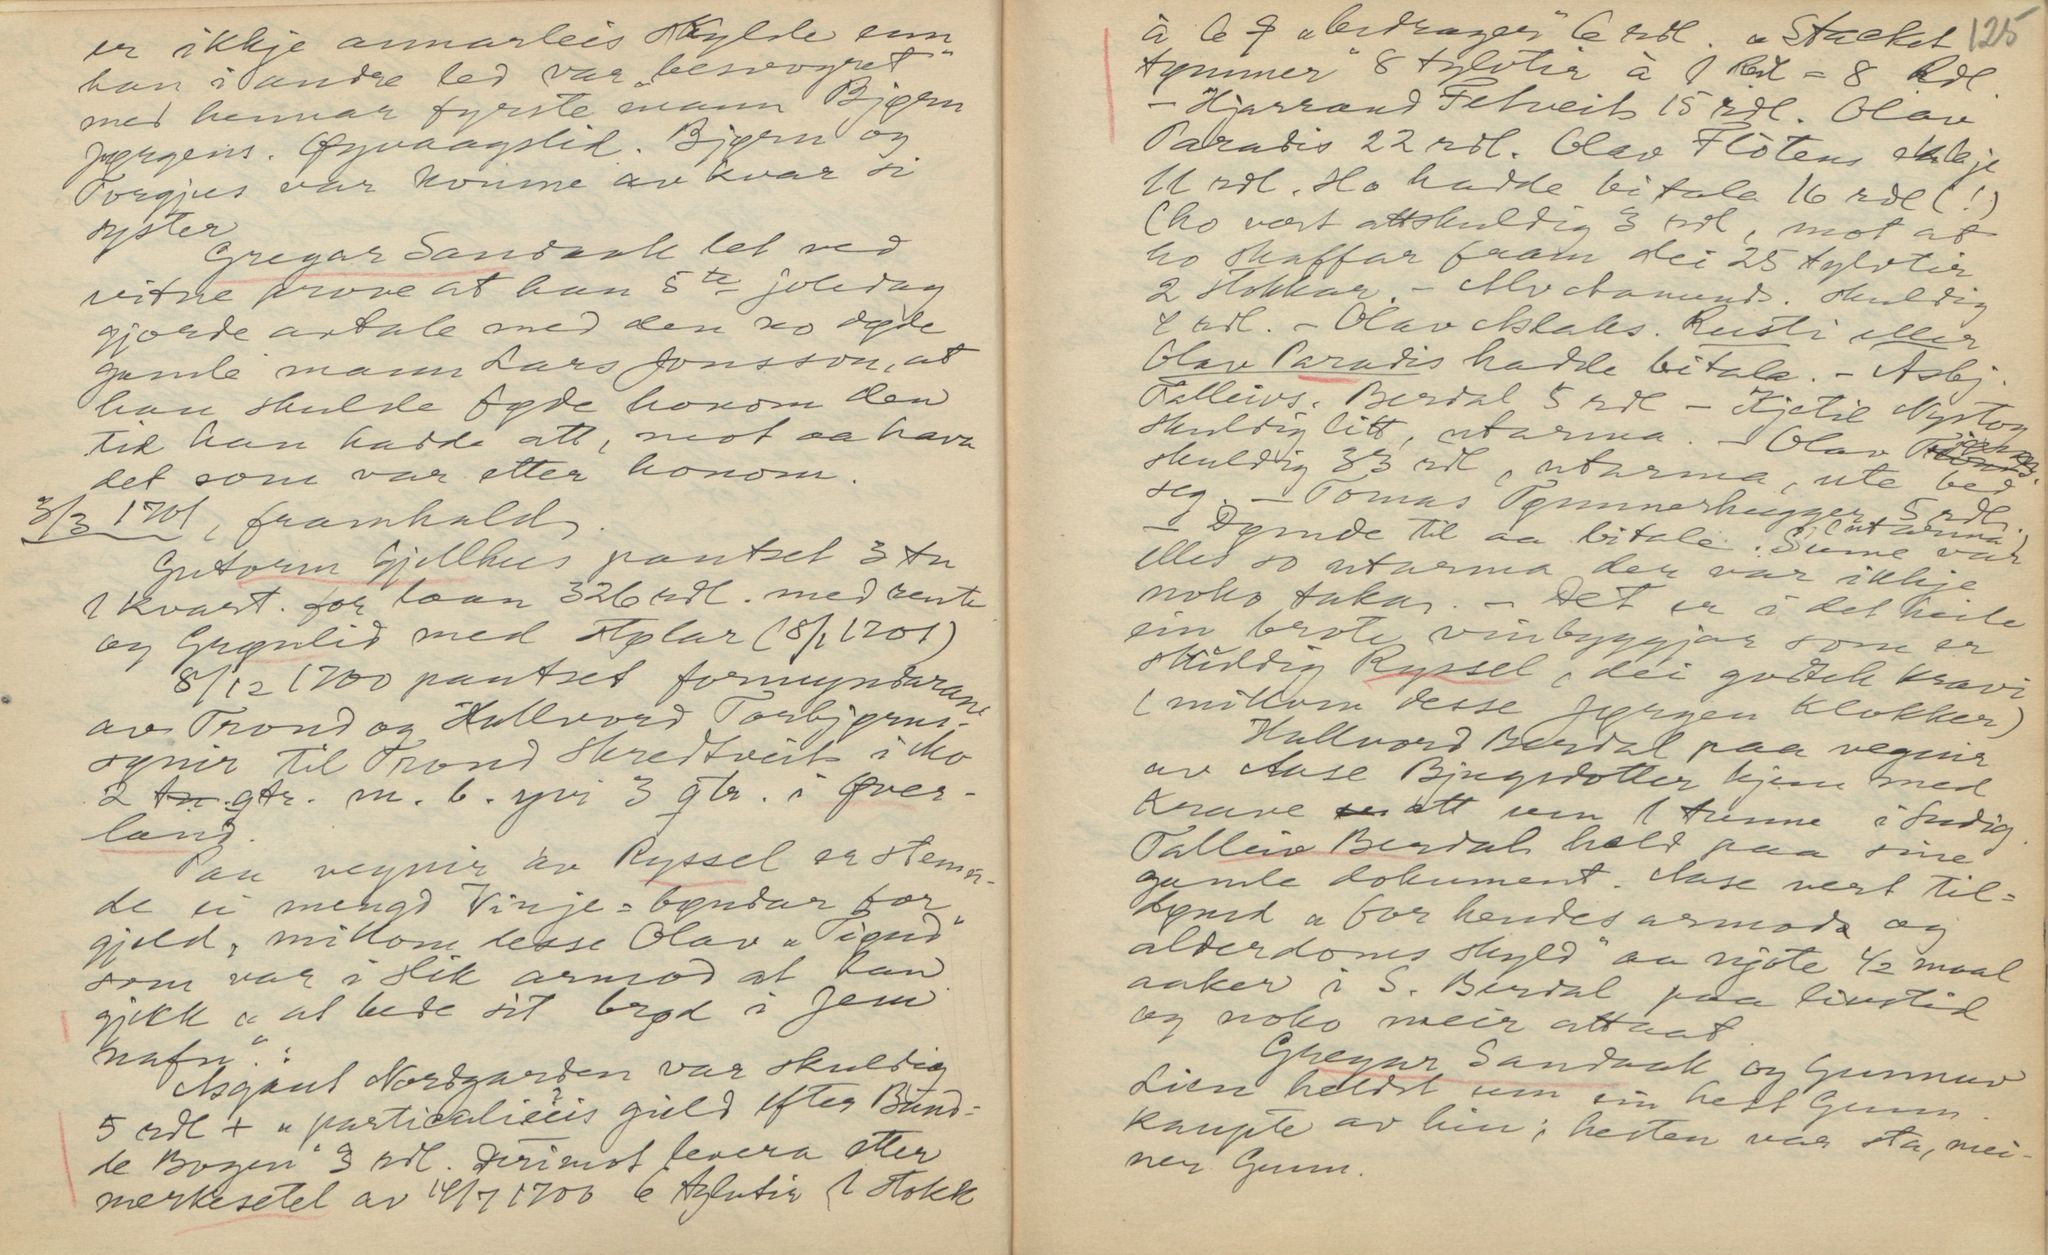 er ikkje annarleis skylde enn
han i andre led var "besvogret"
med hennar fyrste mann Bjørn
Jørgens. Øyvaagslid. Bjørn og
Torgjus var komne av kvar si
syster
Gregar Sandaak let ved
vitne prove at han 5te joledag
gjorde avtale med den no døde
gamle mann Lars Jonsson, at
han skulde føde honom den
tid han hadde att, mot aa hava
det som var etter honom.
3/3 1701, framhald.
Gutorm Gjellhus pantset 3 tn
1 kvart. for laan 326 rdl. med rente
og Grønlid med Aplar (18/1 1701)
8/12 1700 pantset formyndarane
av Trond og Hallvord Torbjørns-
synir til Trond Skredtveit i Mo
2 tn. gtr. m. b. yvi 3 gtr. i Øver-
land.
Paa vegnir av Ryssel er stemn-
de ei mengd Vinje=bøndar for
gjeld, millom desse Olav "Tigud"
som var i slik armod at han
gjekk "at bede sit brød i Jesu
nafn".:
Asgaut Nordgarden var skuldig
5 rdl + "particulieis gield efter Bund-
de Bogen" 3 rdl. Derimot levera etter
merkesetel av 14/7 1700 6 tylvtir 1 stokk
125
à 6 ₰ "bedrager" 6 rdl. "Stacket
tymmer" 8 tylvtir à 1 Rdl = 8 Rdl.
- Hjarrand Felveit 15 rdl. Olav
Paradis 22 rdl. Olav Flotens ekkje
11 rdl. Ho hadde bitala 16 rdl (!)
(ho vart attskuldig 3 rdl, mot at
ho skaffar fram dei 25 tylvtir
2 stokkar. - Alv Aamunds. skuldig
2 rdl. - Olav Aslaks. Rusti eller
Olav Paradis hadde bitala. - Asbj.
Talleivs. Berdal 5 rdl - Kjetil Nystog
skuldig litt, utarma. - Olav
skuldig 33 rdl, utarma, ute bed
seg. - Tomas Tømmerhugger 5 rdl.
(utarma)
- Dømde til aa bitale. Sume var
elles so utarma der var ikkje
noko taka. - Det er i det heile
ein brote vinbyggjar som er
skuldig Ryssel, dei godtek kravi
(millom desse Jørgen Klokker)
Hallvord Berdal paa vegnir
av Aase Bjugsdotter kjem med
krave att um 1 tunne i Sudig.
Talleiv Berdal held paa sine
gamle dokument. Aase vert til=
dømd "for hendes armods og
alderdoms skyld" aa njote 1/2 maal
aaker i S. Berdal paa livstid
og noko meir attaat.
Gregar Sandaak og Gunnuv
Lien heldt um ein hest Gunn.
kaupte av hin; hesten var sta, mei-
ner Gunn.